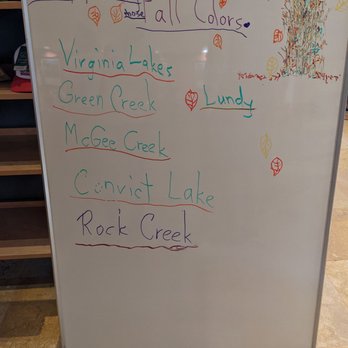 Fall Colors.
Virginia Lakes
Green Creek
Lundy
McGee Creek
Convict Lake
Rock Creek